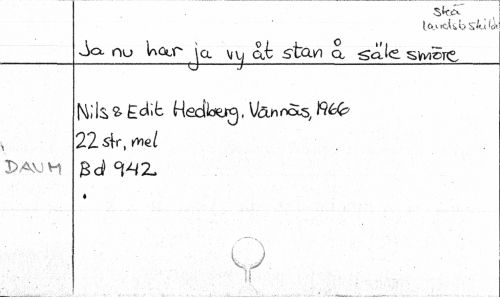 skä
landsbskildr
Ja nu har ja vy åt stan å säle smöre
Nils & Edit Hedberg. Vännäs, 1966
22 str, mel
DAUM Bd 942